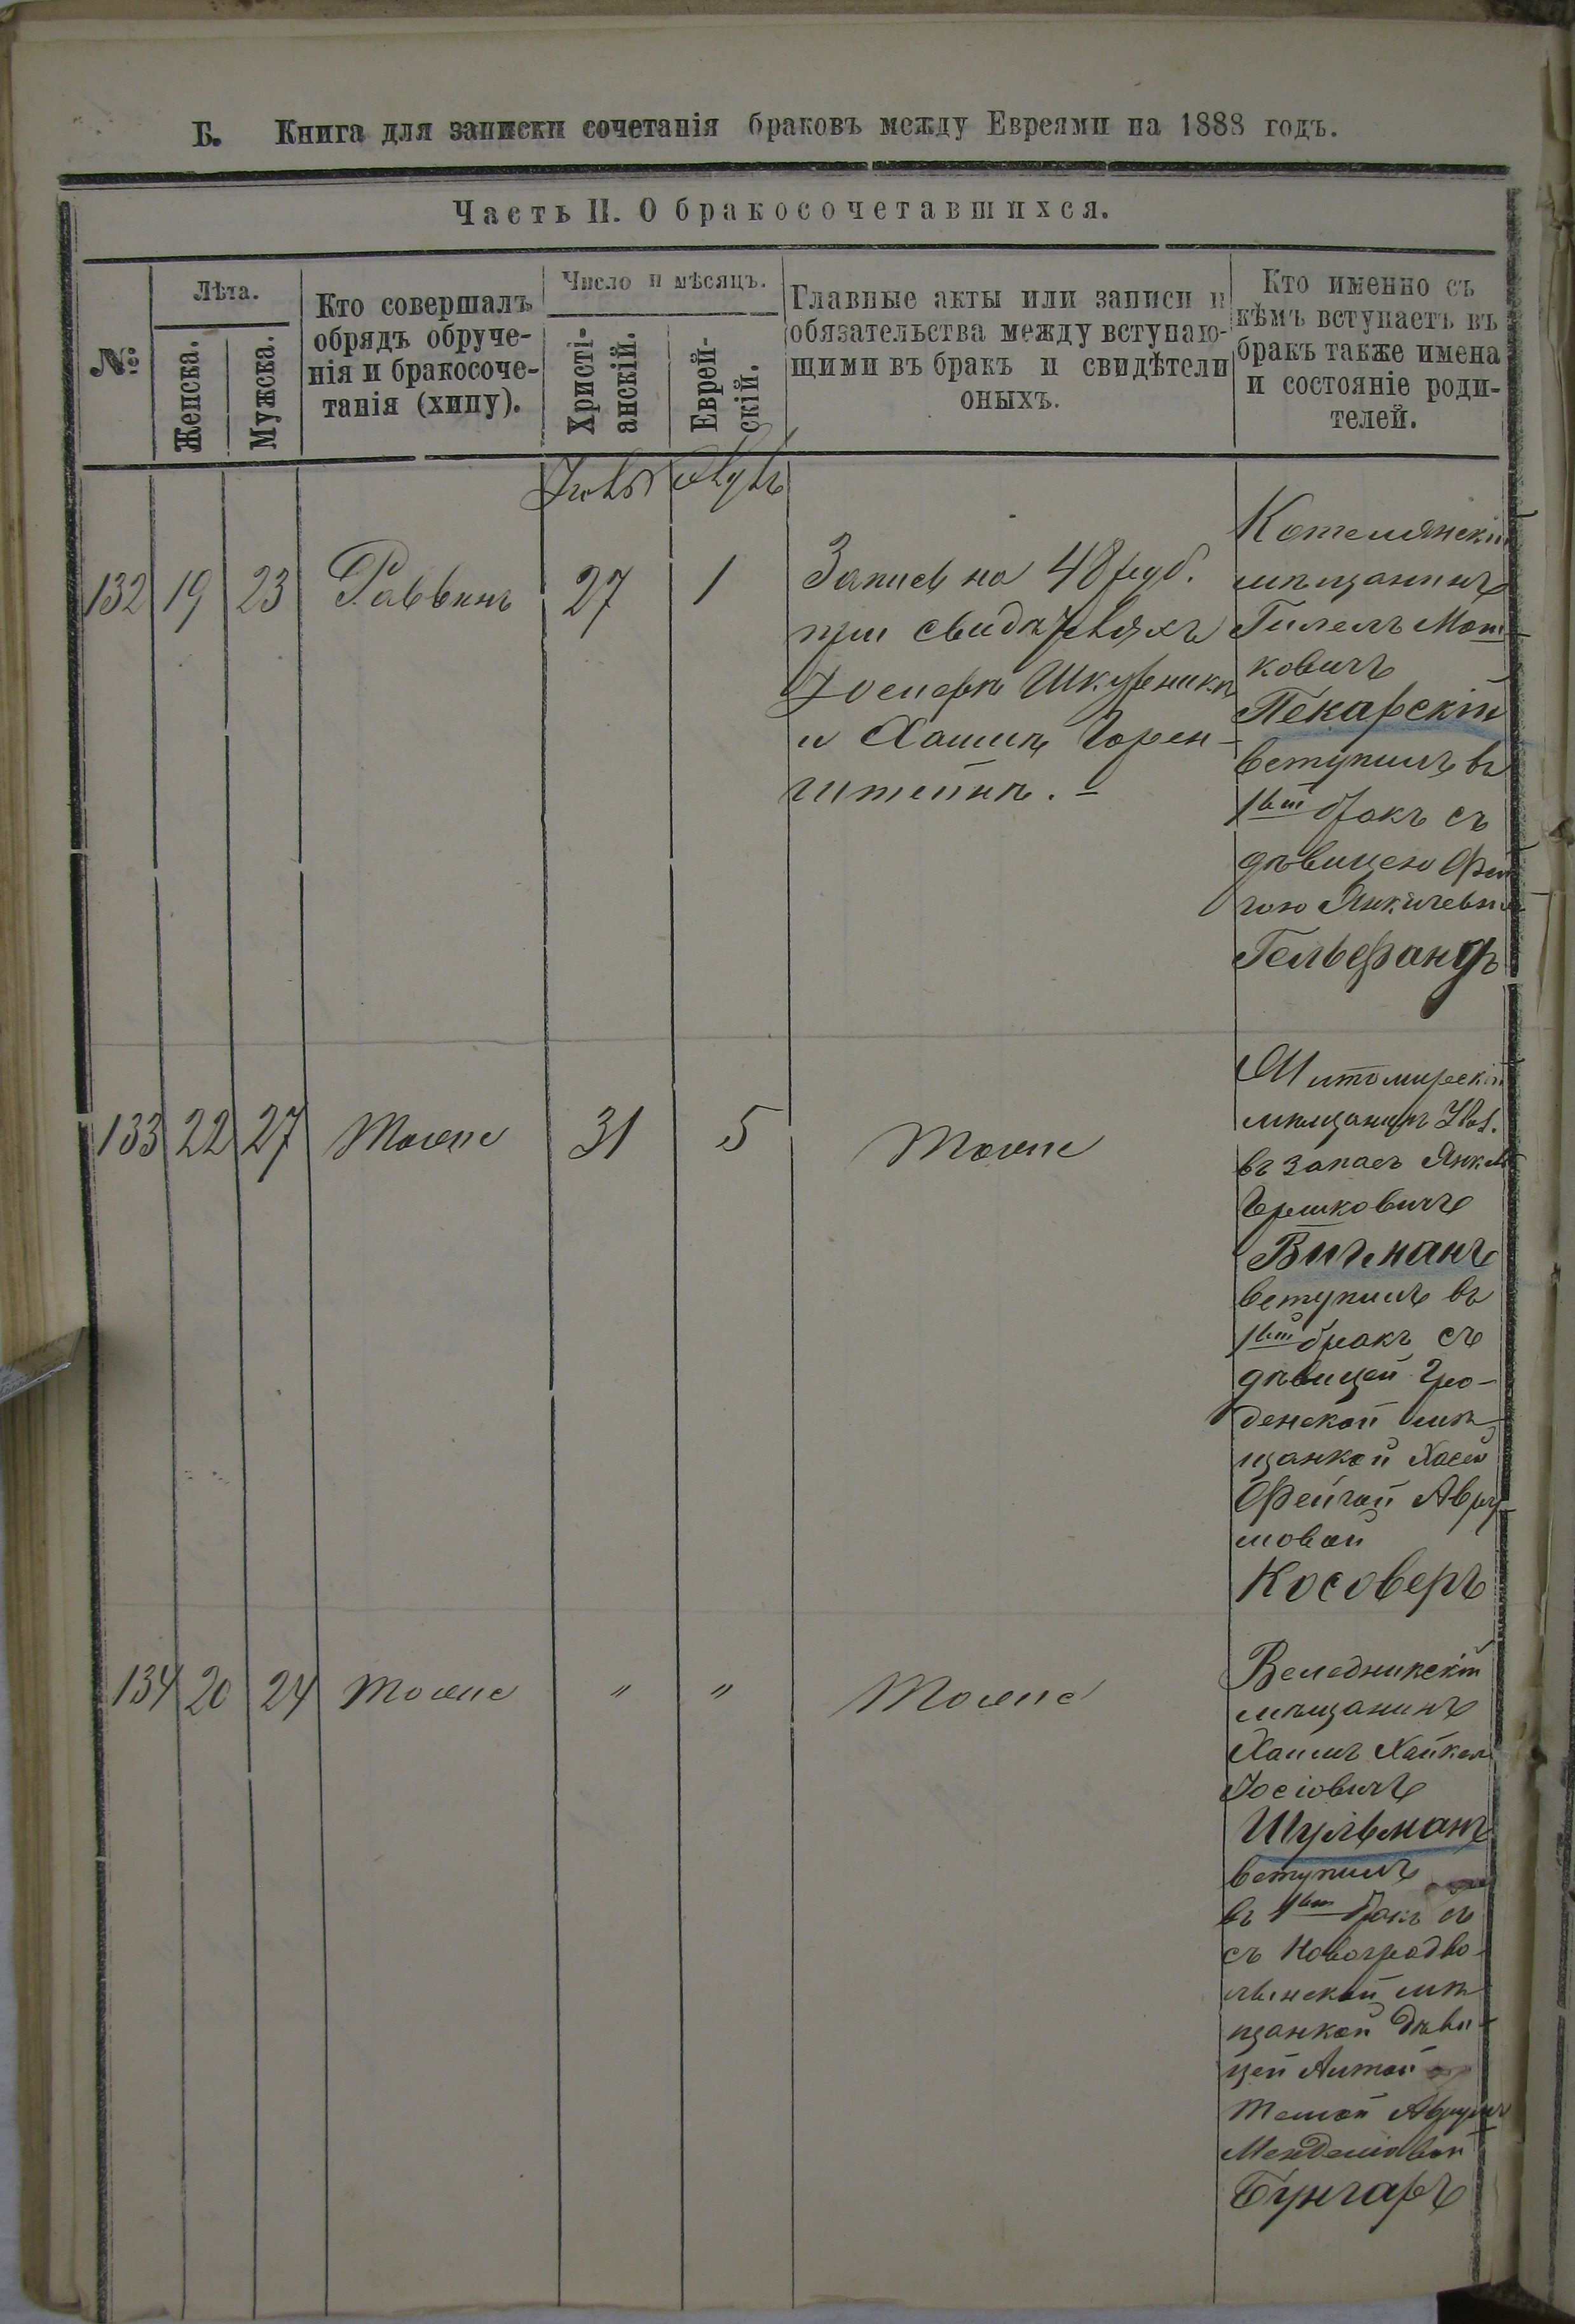 Б. Книга для записки сочетанія браковъ между Евреями на 1888 годъ.
Часть II. О бракосочетавшихся.
№
Лѣта.
Женска.
Мужска.
Кто совершалъ
обрядъ обруче-
нія и бракосоче-
танія (хипу).
Число и мѣсяцъ.
Христі-
анскій.
Еврей-
скій.
Главные акты или записи и
обязательства между вступаю-
щими въ бракъ и свидѣтели
оныхъ.
Кто именно съ
кѣмъ вступаетъ въ
бракъ также имена
и состояніе роди-
телей.
132 19 23 Раввинъ 27 1
Запись на 48 руб.
при свидѣтеляхъ
Іосифѣ Шкурникѣ
и Хаимѣ Горен-
штейнѣ.
Котелянскій
мѣщанинъ
Гилель Мот-
ковичъ
Пекарскій
вступилъ въ
1вый бракъ съ
дѣвицею Фей
гою Янкилевной
Гельфандъ
133 22 27 Тоже 31 5 Тоже
Житомирскій
мѣщанинъ
въ запасъ Янкель
Гершковичъ
Вигманъ
вступилъ въ
1вый бракъ съ
дѣвицей Гро-
денской мѣ-
щанкой Хасей
Фейгой Авру-
мовой
Косоверъ
134 20 24 Тоже " " Тоже
Веледникскій
мѣщанинъ
Хаимъ Хайкель
Іосіовичъ
Шульманъ
вступилъ
въ 1вый бракъ съ
съ Новоградво-
лынской мѣ
щанкой дѣви-
цей
Аврумъ
Менделіовой
Бунгаръ